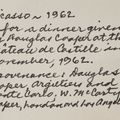 icasso ~ 1962
for a dinner given
Douglas Cooper at the
âteau de Castille in
ovember, 1962.
rovenance: Douglas
oper, Argilliers and
te Carlo. W. McCarty
oper, London and Los Angel